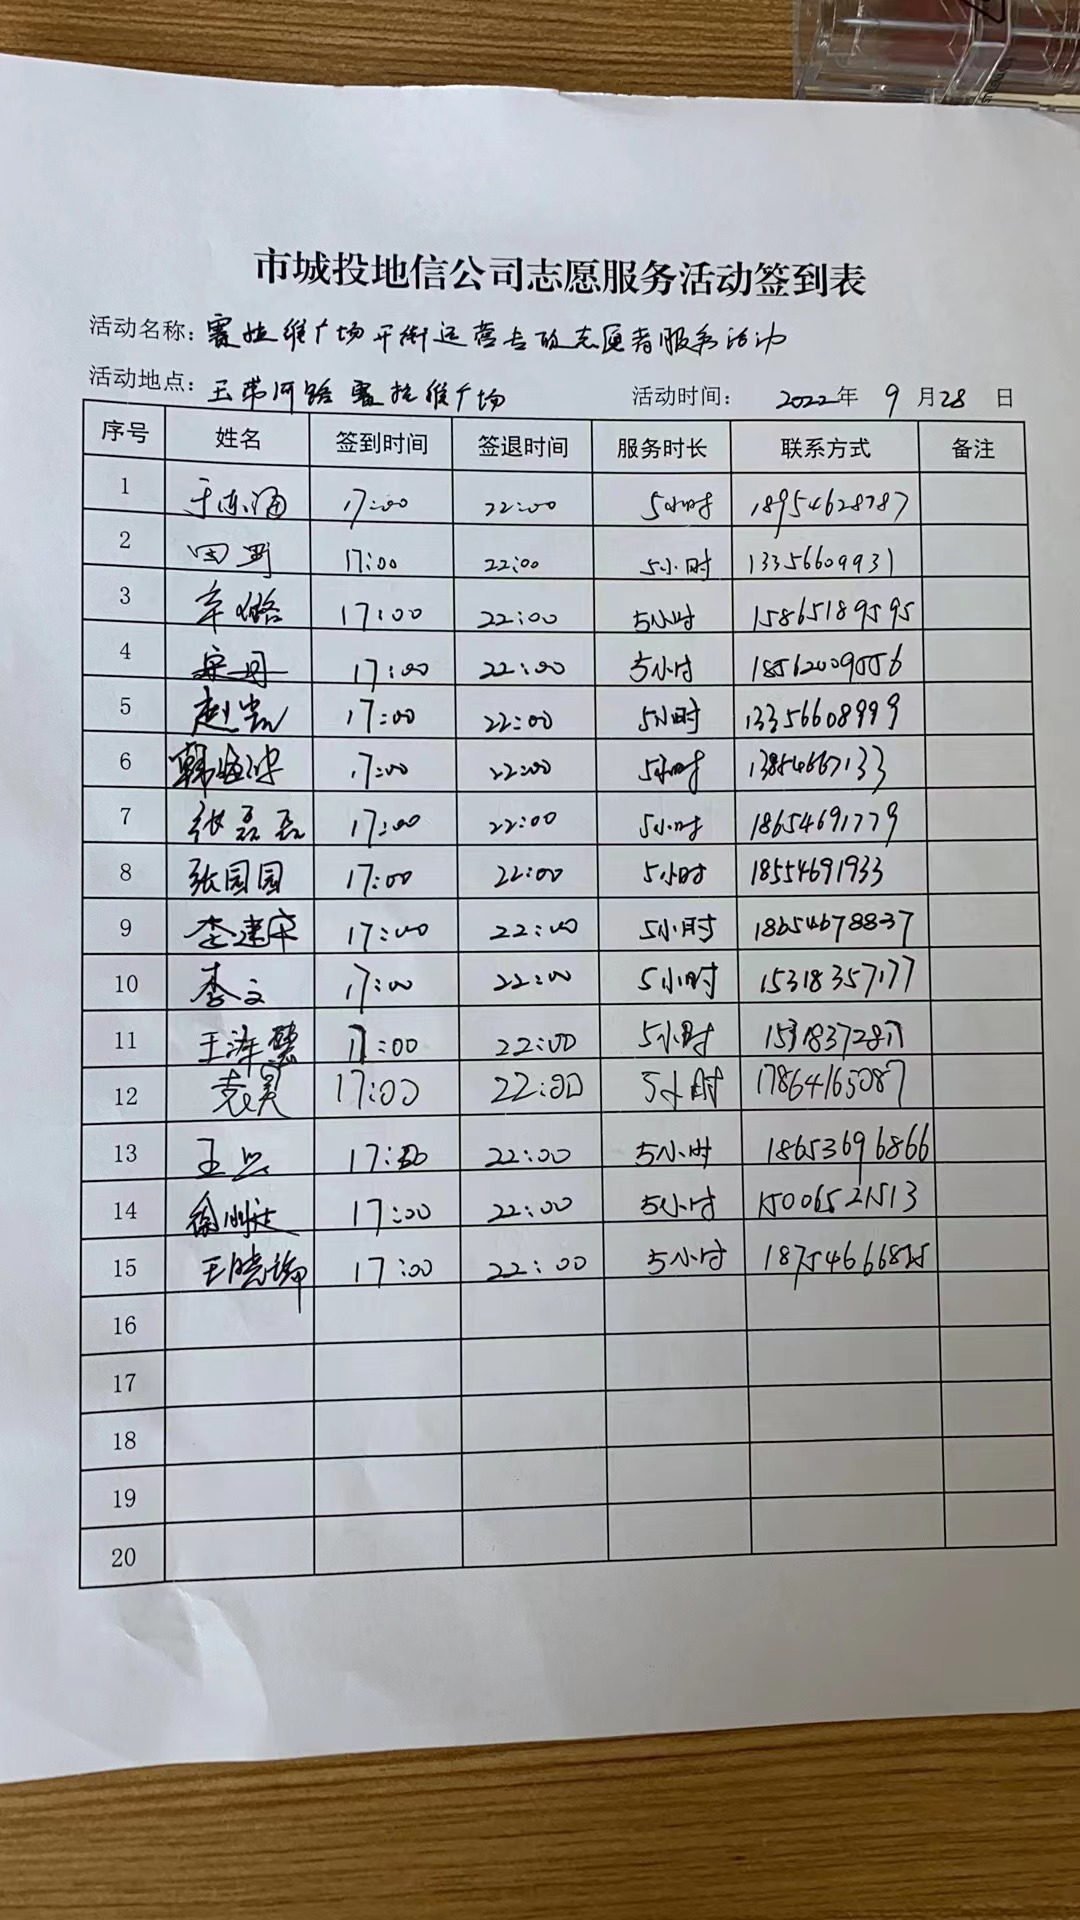 市城投地信公司志愿服务活动签到表
活动名称: 赛拉维广场平衡运营志愿者服务活动
活动地点: 玉带河路 赛拉维广场 活动时间: 2022年 9月28日
序号 姓名 签到时间 签退时间 服务时长 联系方式 备注
1 于东涌 17:00 22:00 5小时 18954628787
2 田野 17:00 22:00 5小时 13356609931
3 辛璐 17:00 22:00 5小时 15865189595
4 宋丹 17:00 22:00 5小时 18562009556
5 赵凯 17:00 22:00 5小时 13356608999
6 韩 17:00 22:00 5小时 13854667133
7 张磊磊 17:00 22:00 5小时 18654691779
8 张园园 17:00 22:00 5小时 18554691933
9 李建宋 17:00 22:00 5小时 18654678837
10 李文 17:00 22:00 5小时 15318357177
11 王泽慧 17:00 22:00 5小时 15318372817
12 袁昊 17:00 22:00 5小时 17864165087
13 王 17:00 22:00 5小时 18653696866
14 徐 17:00 22:00 5小时 15006521513
15 王晓瑜 17:00 22:00 5小时 18754666825
16
17
18
19
20